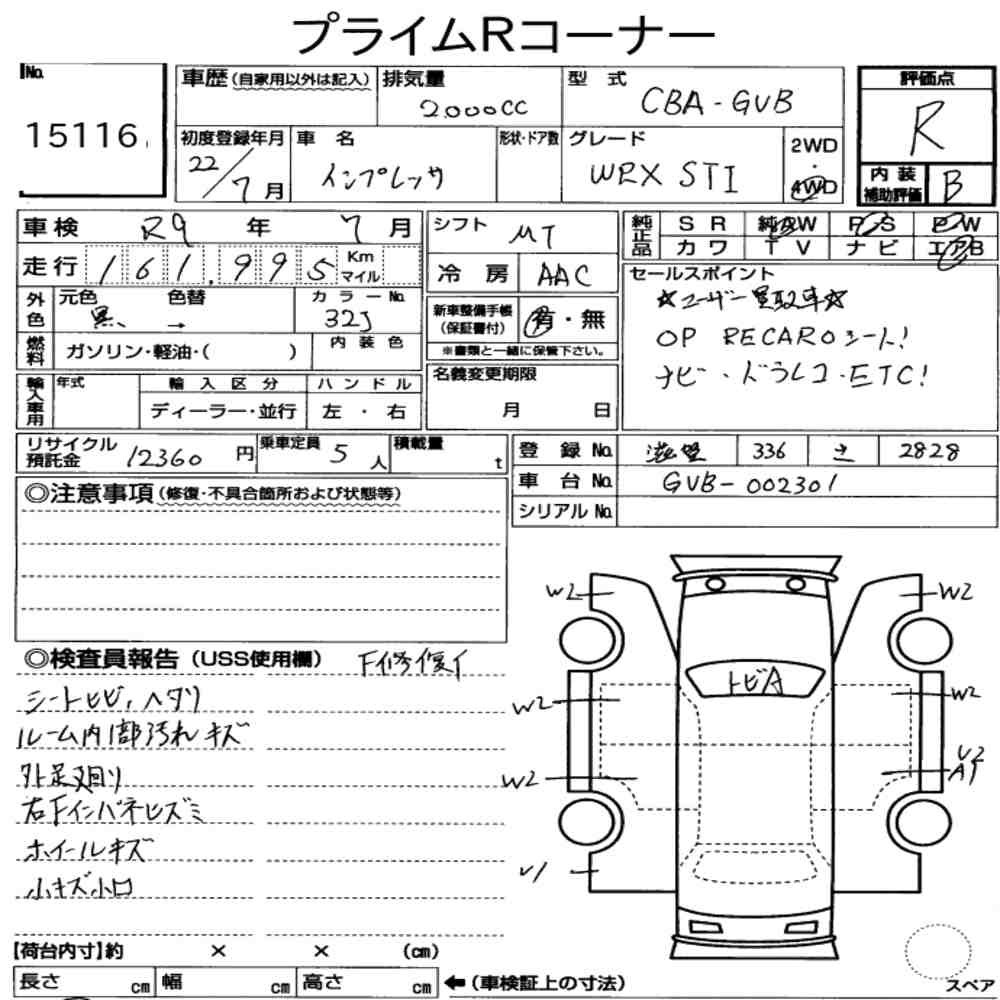 プライムRコーナー
No. 15116
車歴 (自家用以外は記入)
排気量 2000cc
型式 CBA-GVB
評価点 R
初度登録年月 22/7月
車名 インプレッサ
形状・ドア数
グレード WRX STI
2WD・4WD
内装補助評価 B
車検 R9年 7月
シフト MT
純正品 SR 純AW PS PW
カワ TV ナビ エアB
走行 161,995 Km マイル
冷房 AAC
セールスポイント
☆ユーザー買取車☆
外色 元色 黒 色替 →
カラーNo. 32J
新車整備手帳(保証書付) 有・無
OP RECAROシート!
燃料 ガソリン・軽油・( )
内装色
※書類と一緒に保管下さい。
ナビ・ドラレコ・ETC!
輸入車用 年式 輸入区分 ハンドル
ディーラー・並行 左・右
名義変更期限
月 日
リサイクル預託金 12360円
乗車定員 5人
積載量 t
登録No. 滋賀 336 さ 2828
車台No. GVB-002301
シリアルNo.
◎注意事項(修復・不具合箇所および状態等)
◎検査員報告(USS使用欄) F修復イ
シートヒビ,ヘタリ
ルーム内1部汚れ キズ
外足廻り
右Fインパネヒズミ
ホイールキズ
小キズ小凹
W2 W2
トビA
W2 W2
W2 U2
A1
U1
【荷台内寸】約 × × (cm)
長さ cm 幅 cm 高さ cm
←(車検証上の寸法)
スペア